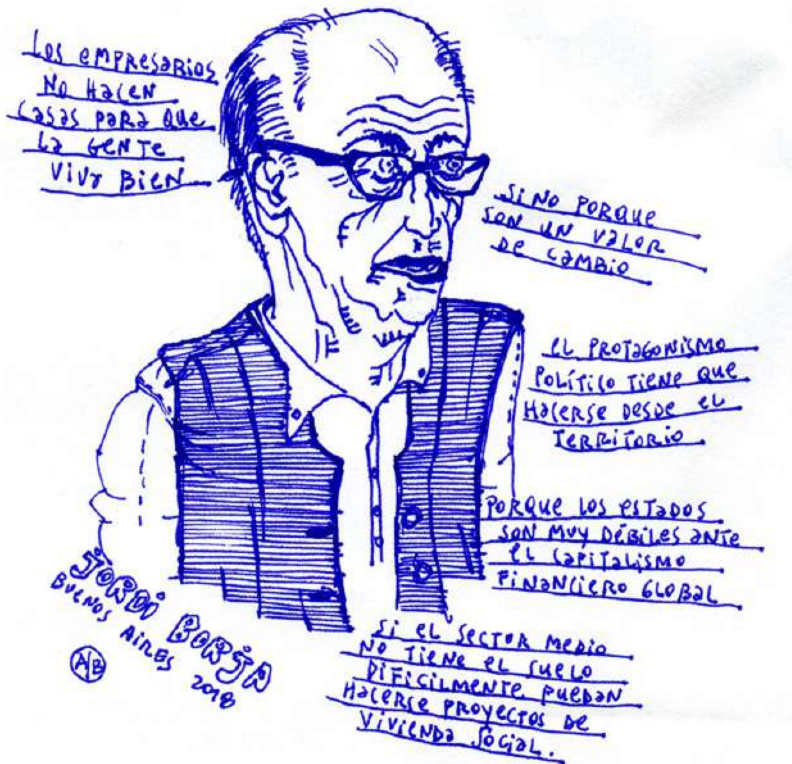 Los empresarios
no hacen
casas para que
la gente
viva bien
si no porque
son un valor
de cambio
el protagonismo
político tiene que
hacerse desde el
territorio
porque los estados
son muy débiles ante
el capitalismo
financiero global
si el sector medio
no tiene el suelo
dificilmente puedan
hacerse proyectos de
vivienda social.
JORDI BORJA
BUENOS AIRES 2018
A/B